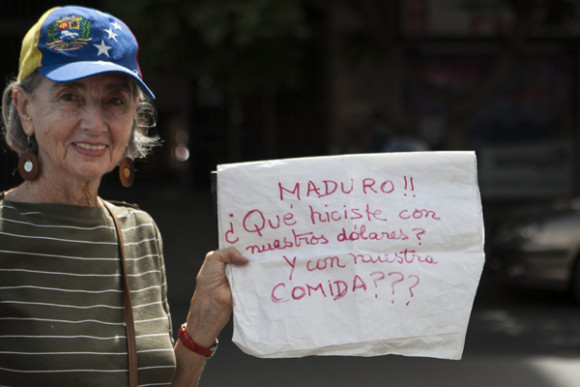 MADURO!!
¿Qué hiciste con
nuestros dólares?
Y con nuestra
COMIDA???